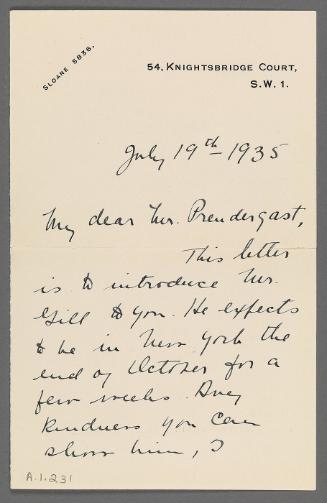 SLOANE 5838.
54, KNIGHTSBRIDGE COURT,
S.W. 1.
July 19th - 1935
My dear Mr. Prendergast,
This letter
is to introduce Mr.
Gill to you. He expects
to be in New York the
end of October for a
few weeks. Any
kindness you can
show him, I
A.1.231